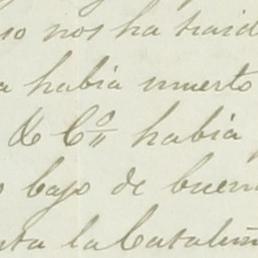 so nos ha traid
a habia muerto
& Co habia
o bajo de buen
nta la Cataluñ